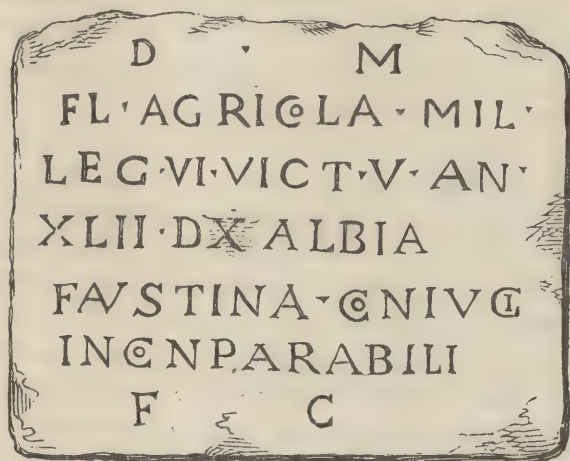 D · M
FL · AGRICOLA · MIL ·
LEG · VI · VICT · V · AN ·
XLII · DX ALBIA
FAVSTINA · CONIVGI
INCONPARABILI
F C